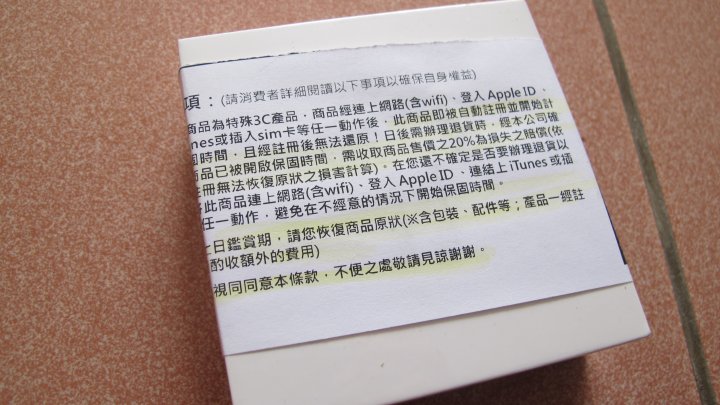 項：(請消費者詳細閱讀以下事項以確保自身權益)
商品為特殊3C產品，商品經連上網路(含wifi)、登入Apple ID、
nes或插入sim卡等任一動作後，此商品即被自動註冊並開始計
固時間，且經註冊後無法還原！日後需辦理退貨時，經本公司確
商品已被開啟保固時間，需收取商品售價之20%為損失之賠償(依
註冊無法恢復原狀之損害計算)。在您還不確定是否要辦理退貨以
將此商品連上網路(含wifi)、登入Apple ID、連結上iTunes或插
任一動作，避免在不經意的情況下開始保固時間。
七日鑑賞期，請您恢復商品原狀(※含包裝、配件等；產品一經註
酌收額外的費用)
視同同意本條款，不便之處敬請見諒謝謝。